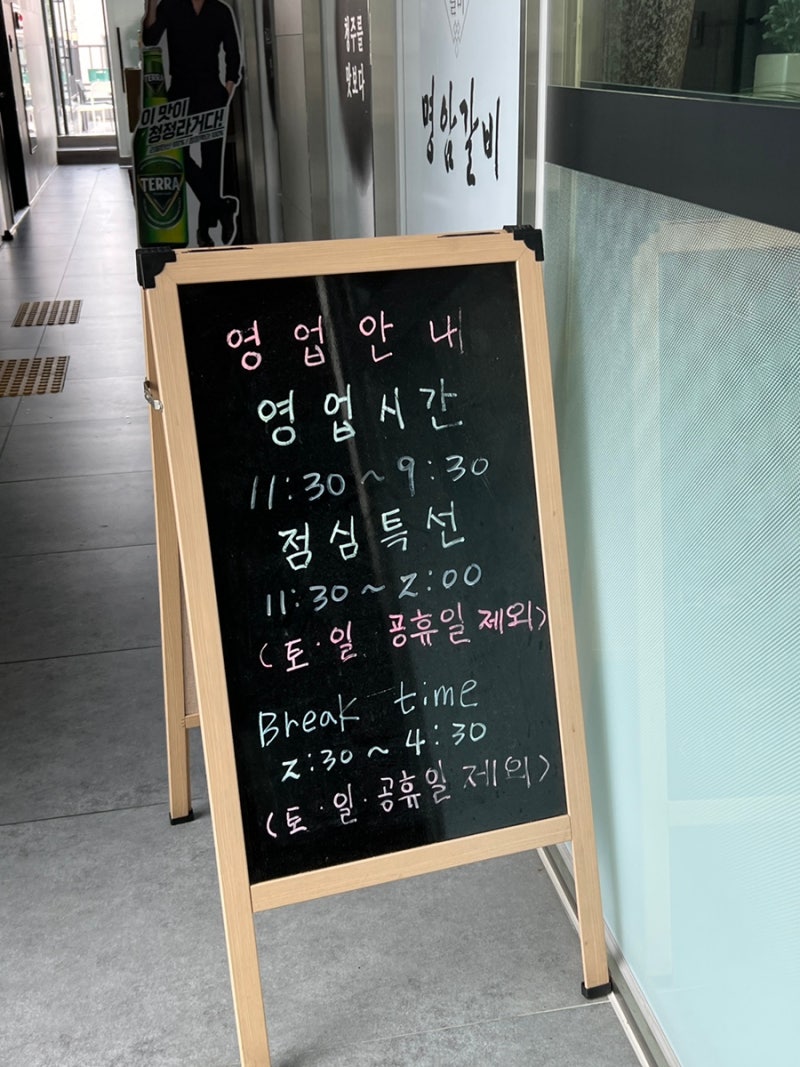 이 맛이
청정라거다!
TERRA
TERRA
청주를
맛보다
명암갈비
영업안내
영업시간
11:30~9:30
점심특선
11:30~2:00
(토·일 공휴일 제외)
Break time
2:30~4:30
(토·일·공휴일 제외)